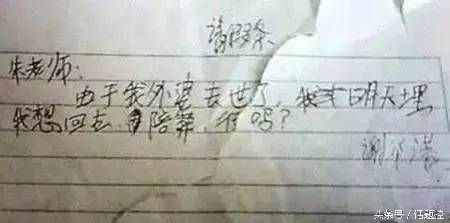 请假条
朱老师:
由于我外婆去世了,我 明天埋
我想回去 陪葬,行吗?
谢
头条号/